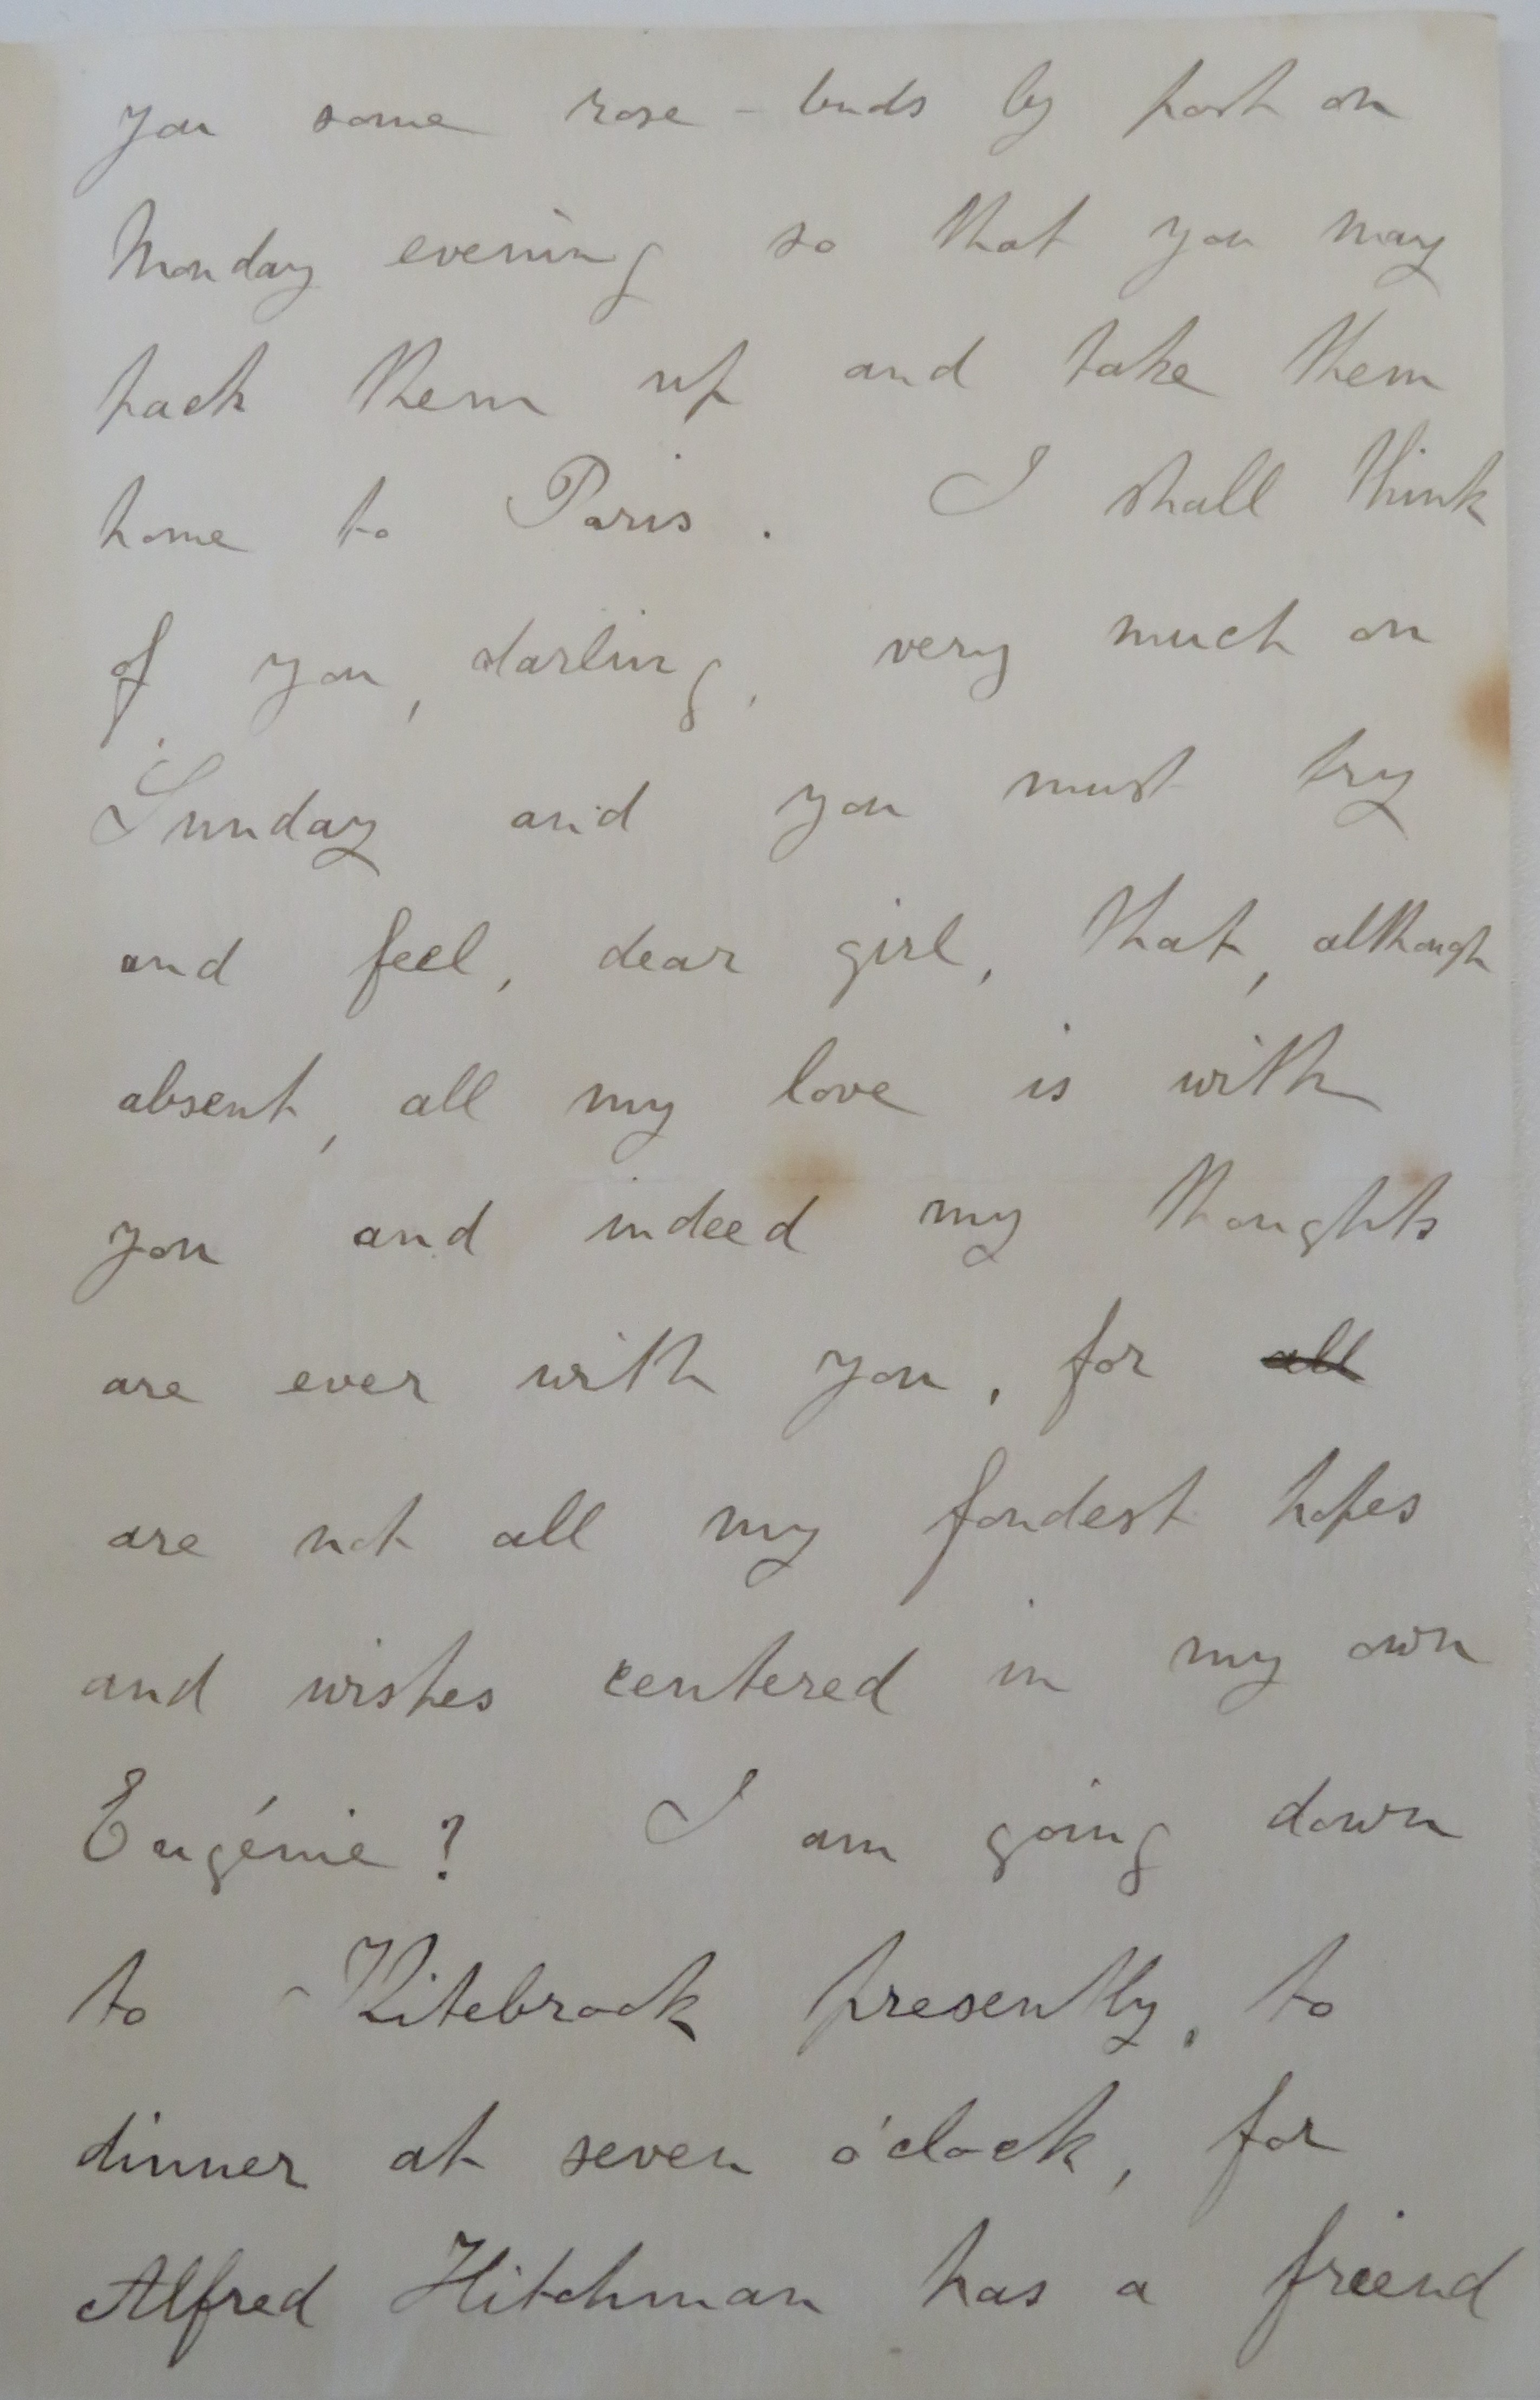 you some rose-buds by post on
Monday evening so that you may
pack them up and take them
home to Paris. I shall think
of you, darling, very much on
Sunday and you must try
and feel, dear girl, that, although
absent, all my love is with
you and indeed my thoughts
are ever with you, for all
are not all my fondest hopes
and wishes centered in my own
Eugénie? I am going down
to Kitebrook presently, to
dinner at seven o'clock, for
Alfred Hitchman has a friend